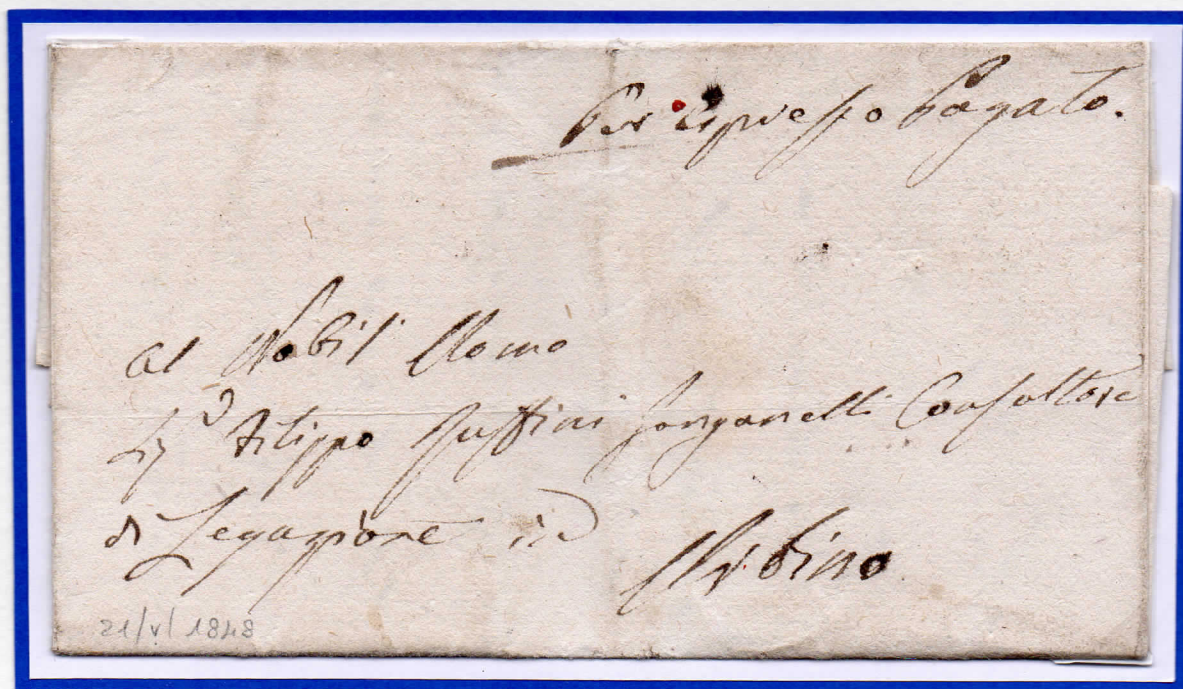 Per Espresso Pagato.
Al Nobil Uomo
Sig Filippo Ganganelli Consultore
di Legazione in
Urbino
21/V/1848